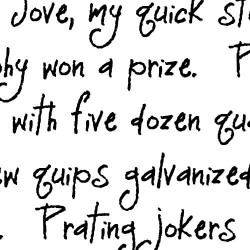 Jove, my quick st
phy won a prize. P
with five dozen qu
ew quips galvanized
. Prating jokers